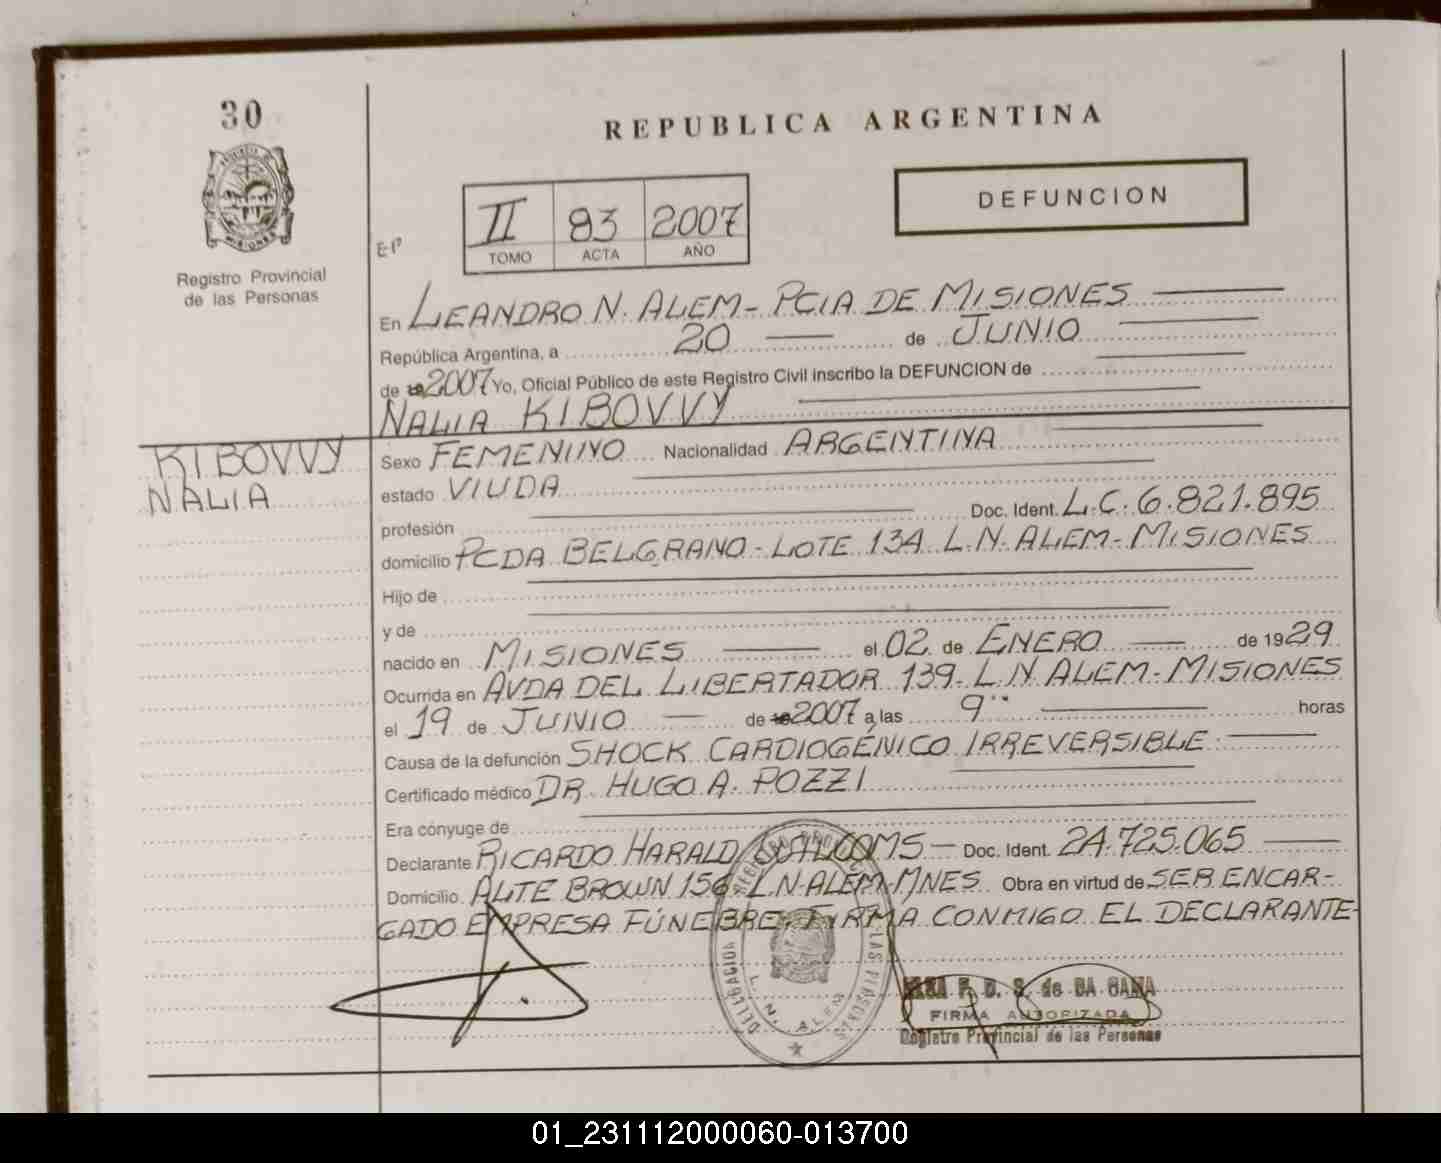 30
REPUBLICA ARGENTINA
DEFUNCION
II 83 2007
TOMO ACTA AÑO
Registro Provincial
de las Personas
En LEANDRO N. ALEM - PCIA DE MISIONES
República Argentina, a 20 de JUNIO
de 2007 Yo, Oficial Público de este Registro Civil inscribo la DEFUNCION de
NALIA KIBOVVY
KIBOVVY
NALIA
Sexo FEMENINO Nacionalidad ARGENTINA
estado VIUDA
profesión Doc. Ident. L.C. 6.821.895
domicilio PCDA BELGRANO - LOTE 134 L.N. ALEM - MISIONES
Hijo de
y de
nacido en MISIONES el 02 de ENERO de 1929
Ocurrida en AVDA DEL LIBERTADOR 139 - L.N ALEM - MISIONES
el 19 de JUNIO de 2007 a las 9 horas
Causa de la defunción SHOCK CARDIOGÉNICO IRREVERSIBLE
Certificado médico DR. HUGO A. POZZI
Era cónyuge de
Declarante RICARDO HARALD Doc. Ident. 24.725.065
Domicilio ALTE BROWN 156 L.N ALEM MNES Obra en virtud de SER ENCAR-
GADO EMPRESA FÚNEBRE. FIRMA CONMIGO EL DECLARANTE-
DELEGACION L. N. ALEM
de DA GAMA
FIRMA AUTORIZADA
Registro Provincial de las Personas
01_231112000060-013700